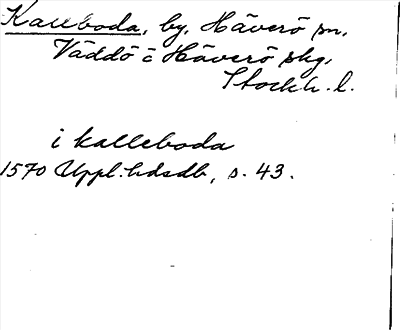 Kalleboda, by, Häverö sn,
Väddö o Häverö skg,
Stockh. l.
i kalleboda
1570 Uppl. hdsdb, s. 43.